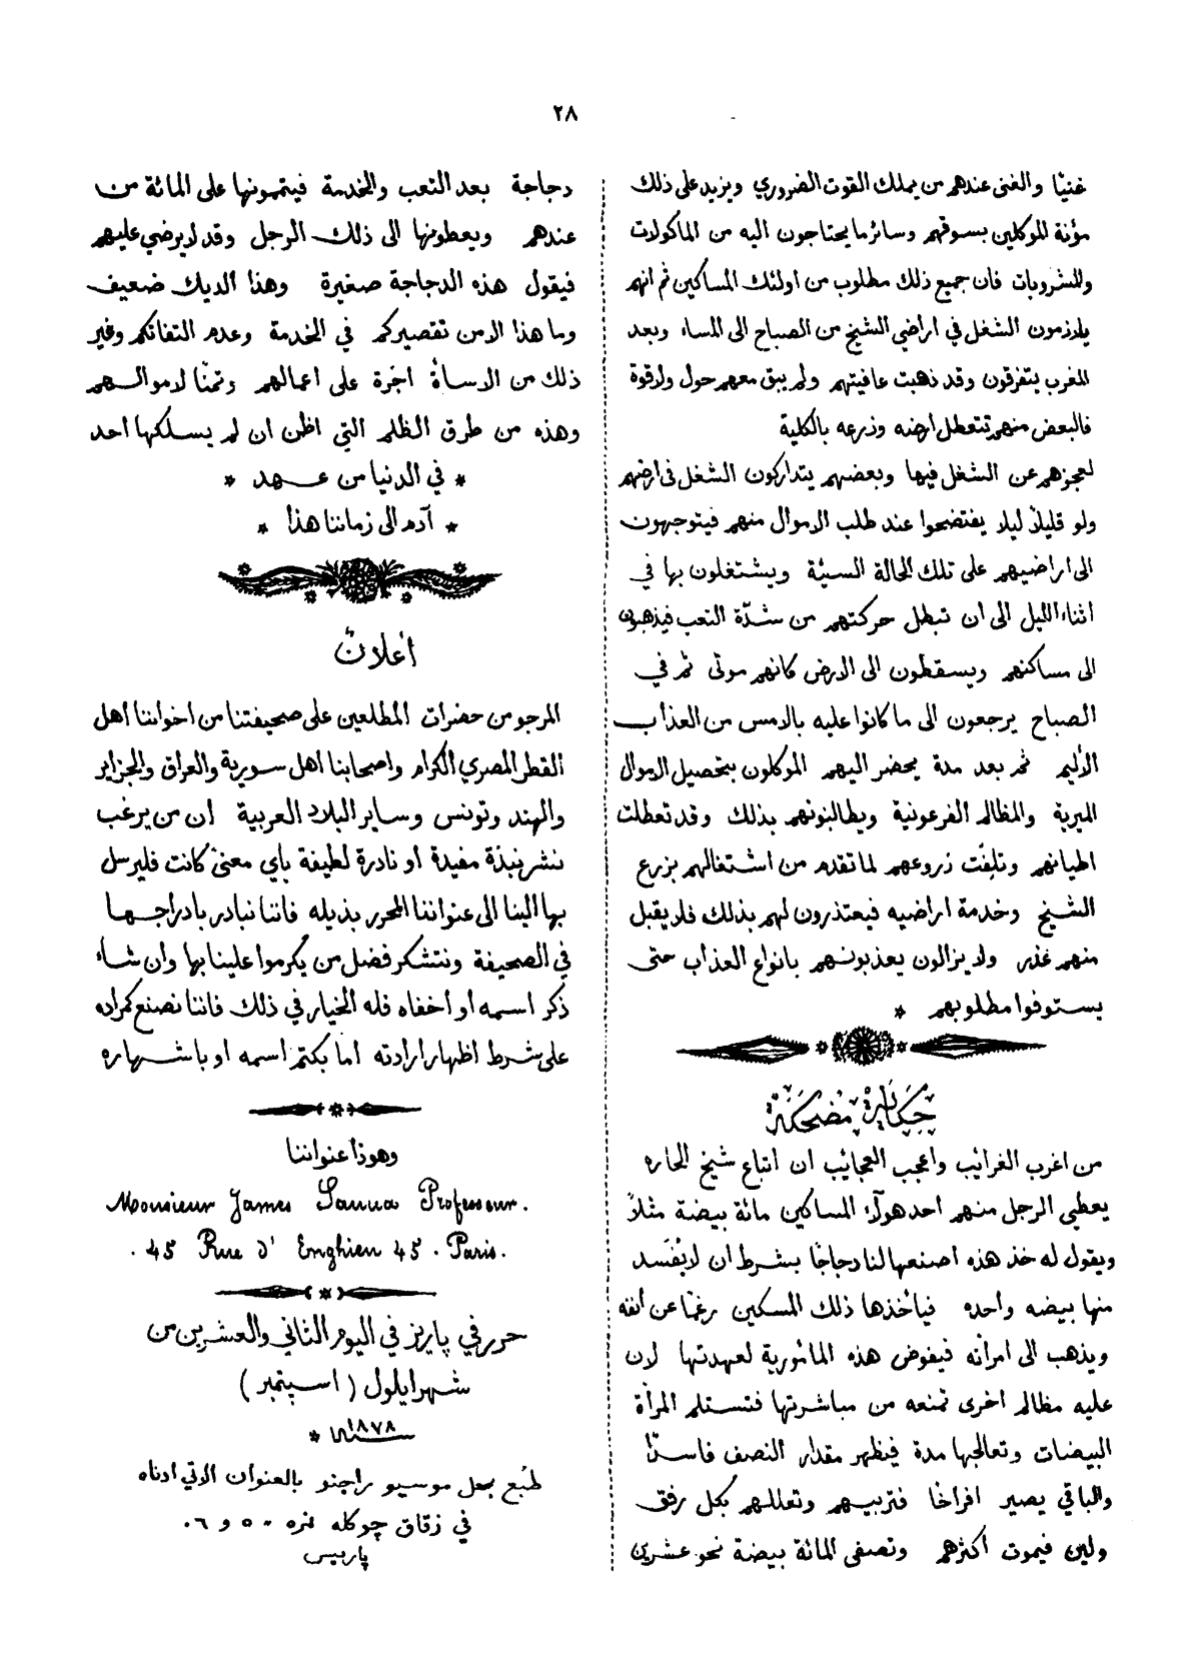 ٢٨
غنيًا والغنى عندهم من يملك القوت الضروري ويزيد على ذلك
مؤنة الموكلين بسوقهم وسائر ما يحتاجون اليه من المأكولات
والمشروبات فان جميع ذلك مطلوب من اولئك المساكين ثم انهم
يلازمون الشغل في اراضي الشيخ من الصباح الى المساء وبعد
المغرب يتفرقون وقد ذهبت عافيتهم ولم يبق معهم حول ولا قوة
فالبعض منهم تتعطل ارضه وزرعه بالكلية
لعجزهم عن الشغل فيها وبعضهم يتداركون الشغل فى ارضهم
ولو قليلاً ليلا يفتضحوا عند طلب الاموال منهم فيتوجهون
الى اراضيهم على تلك الحالة السيئة ويشتغلون بها في
اثناء الليل الى ان تبطل حركتهم من شدّة التعب فيذهبون
الى مساكنهم ويسقطون الى الارض كانهم موتى ثم في
الصباح يرجعون الى ما كانوا عليه بالامس من العذاب
الأليم ثم بعد مدة يحضر اليهم الموكلون بتحصيل الاموال
الميرية والمظالم الفرعونية ويطالبونهم بذلك وقد تعطلت
اطيانهم وتلِفت زروعهم لما تقدم من اشتغالهم بزرع
الشيخ وخدمة اراضيه فيعتذرون لهم بذلك فلا يقبل
منهم عذر ولا يزالون يعذبونهم بانواع العذاب حتى
يستوفوا مطلوبهم *
حِكَايَة مُضْحِكَة
من اغرب الغرائب واعجب العجايب ان اتباع شيخ الحاره
يعطي الرجل منهم احد هولآء المساكين مائة بيضة مثلاً
ويقول له خذ هذه اصنعها لنا دجاجًا بشرط ان لا يُفسد
منها بيضه واحده فيأخذها ذلك المسكين رغمًا عن أنفه
ويذهب الى امرأته فيفوض هذه المأمورية لعهدتها لان
عليه مظالم اخرى تمنعه من مباشرتها فتستلم المرأة
البيضات وتعالجها مدة فيظهر مقدار النصف فاسدًا
والباقي يصير افراخًا فتربيهم وتعللهم بكل رفق
ولين فيموت اكثرهم وتصفى المائة بيضة نحو عشرين
دجاجة بعد التعب والخدمة فيتممونها على المائة من
عندهم ويعطونها الى ذلك الرجل وقد لا يرضي عليهم
فيقول هذه الدجاجة صغيرة وهذا الديك ضعيف
وما هذا الا من تقصيركم في الخدمة وعدم التفاتكم وغير
ذلك من الاسأة اجرة على اعمالهم وثمنًا لاموالهم
وهذه من طرق الظلم التي اظن ان لم يسلكها احد
* في الدنيا من عهد *
* آدم الى زماننا هذا *
أعلانٌ
المرجو من حضرات المطلعين على صحيفتنا من أخواننا أهل
القطر المصري الكرام واصحابنا اهل سورية والعراق والجزاير
والهند وتونس وساير البلاد العربية ان من يرغب
ننشر نبذة مفيدة او نادرة لطيفة بأي معنىً كانت فليرسل
بها الينا الى عنواننا المحرر بذيله فاننا نبادر بادراجها
في الصحيفة ونتشكر فضل من يكرموا علينا بها وان شاء
ذكر اسمه أو أخفاه فله الخيار في ذلك فاننا نصنع كمراده
على شرط اظهار ارادته اما بكتم اسمه او باشهاره
وهوذا عنواننا
Monsieur James Sanua Professeur.
. 45 Rue d' Enghien 45 . Paris.
حرر في پاريز في اليوم الثاني والعشرين من
شهر ايلول (اسپتمبر)
سنة ١٨٧٨ *
طُبع بمحل موسيو راجنو بالعنوان الاتي ادناه
في زقاق چوكله نمره ٥٠ و ٦٠
پاريس